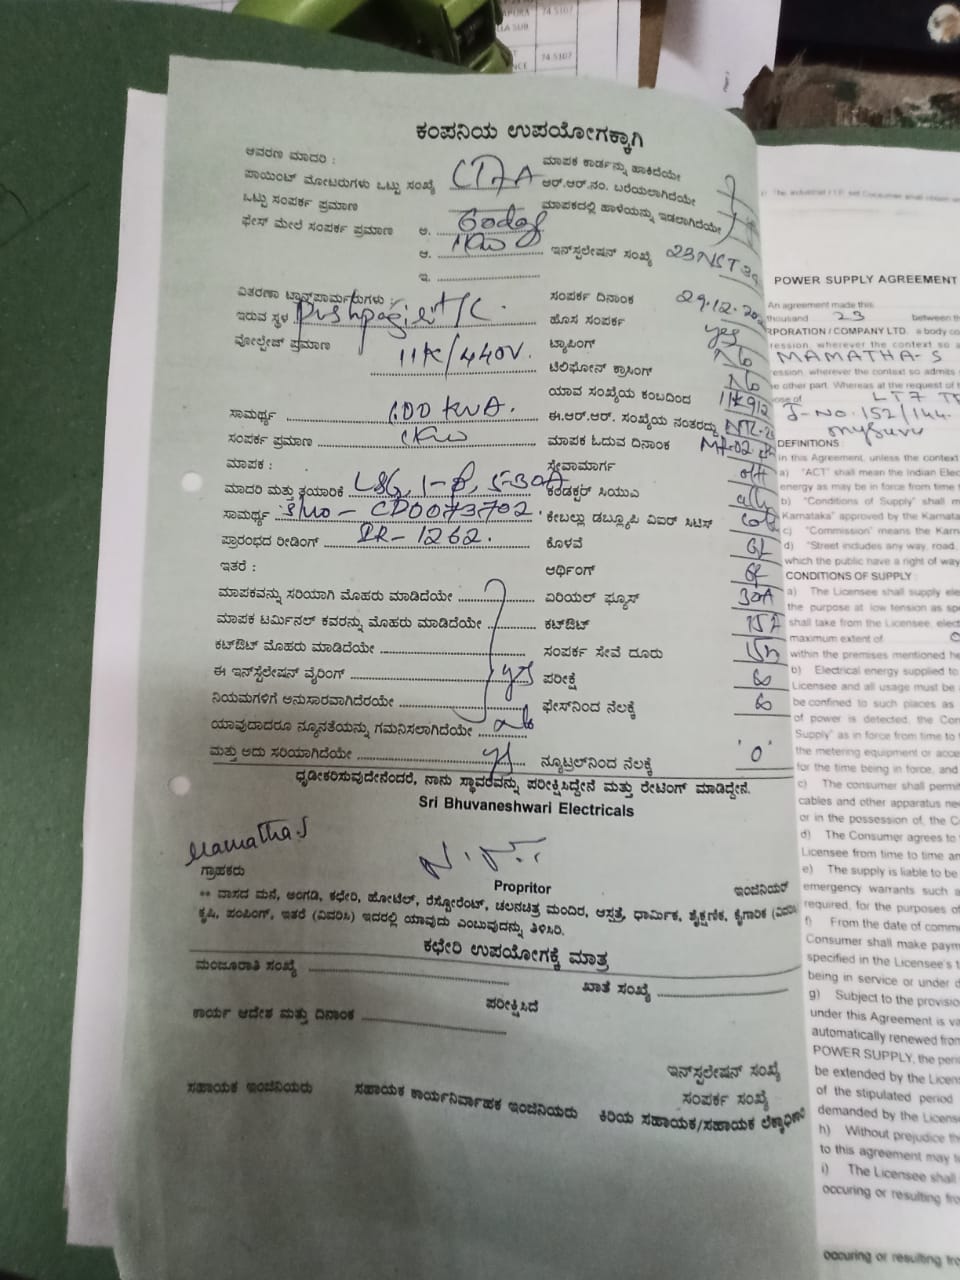 ಕಂಪನಿಯ ಉಪಯೋಗಕ್ಕಾಗಿ
ಆವರಣ ಮಾದರಿ :
ಮಾಪಕ ಕಾರ್ಡನ್ನು ಹಾಕಿದೆಯೇ
ಪಾಯಿಂಟ್ ಮೋಟರುಗಳು ಒಟ್ಟು ಸಂಖ್ಯೆ
ಆರ್.ಆರ್.ನಂ. ಬರೆಯಲಾಗಿದೆಯೇ
ಒಟ್ಟು ಸಂಪರ್ಕ ಪ್ರಮಾಣ
ಮಾಪಕದಲ್ಲಿ ಹಾಳೆಯನ್ನು ಇಡಲಾಗಿದೆಯೇ
ಫೇಸ್ ಮೇಲೆ ಸಂಪರ್ಕ ಪ್ರಮಾಣ ಅ.
ಆ. 1KW ಇನ್‌ಸ್ಟಲೇಷನ್ ಸಂಖ್ಯೆ
ಇ.
ವಿತರಣಾ ಟ್ರಾನ್ಸ್‌ಫಾರ್ಮರುಗಳು :
ಸಂಪರ್ಕ ದಿನಾಂಕ 29.12.
ಇರುವ ಸ್ಥಳ T/C
ಹೊಸ ಸಂಪರ್ಕ yes
ವೋಲ್ಟೇಜ್ ಪ್ರಮಾಣ 11K/440V.
ಟ್ಯಾಪಿಂಗ್ No
ಟೆಲಿಫೋನ್ ಕ್ರಾಸಿಂಗ್ No
ಯಾವ ಸಂಖ್ಯೆಯ ಕಂಬದಿಂದ
ಸಾಮರ್ಥ್ಯ 100 KVA.
ಈ.ಆರ್.ಆರ್. ಸಂಖ್ಯೆಯ ನಂತರದ್ದು
ಸಂಪರ್ಕ ಪ್ರಮಾಣ 1KW
ಮಾಪಕ ಓದುವ ದಿನಾಂಕ
ಮಾಪಕ :
ಸೇವಾಮಾರ್ಗ
ಮಾದರಿ ಮತ್ತು ತಯಾರಿಕೆ
ಕಂಡಕ್ಟರ್ ಸಿಯುಎ
ಸಾಮರ್ಥ್ಯ S/no - CD0073702
ಕೇಬಲ್ಲು ಡಬ್ಲ್ಯೂಪಿ ವಿಐರ್ ಸಿಟಿಸ್
ಪ್ರಾರಂಭದ ರೀಡಿಂಗ್ IR- 1262.
ಕೊಳವೆ
ಇತರೆ :
ಆರ್ಥಿಂಗ್
ಮಾಪಕವನ್ನು ಸರಿಯಾಗಿ ಮೊಹರು ಮಾಡಿದೆಯೇ
ಏರಿಯಲ್ ಫ್ಯೂಸ್ 30A
ಮಾಪಕ ಟರ್ಮಿನಲ್ ಕವರನ್ನು ಮೊಹರು ಮಾಡಿದೆಯೇ
ಕಟ್‌ಔಟ್
ಕಟ್‌ಔಟ್ ಮೊಹರು ಮಾಡಿದೆಯೇ
ಸಂಪರ್ಕ ಸೇವೆ ದೂರು
ಈ ಇನ್‌ಸ್ಟೆಲೇಷನ್ ವೈರಿಂಗ್ yes
ಪರೀಕ್ಷೆ
ನಿಯಮಗಳಿಗೆ ಅನುಸಾರವಾಗಿದೆರಯೇ
ಫೇಸ್‌ನಿಂದ ನೆಲಕ್ಕೆ
ಯಾವುದಾದರೂ ನ್ಯೂನತೆಯನ್ನು ಗಮನಿಸಲಾಗಿದೆಯೇ No
ಮತ್ತು ಅದು ಸರಿಯಾಗಿದೆಯೇ
ನ್ಯೂಟ್ರಲ್‌ನಿಂದ ನೆಲಕ್ಕೆ '0'
ಧೃಡೀಕರಿಸುವುದೇನೆಂದರೆ, ನಾನು ಸ್ಥಾವರವನ್ನು ಪರೀಕ್ಷಿಸಿದ್ದೇನೆ ಮತ್ತು ರೇಟಿಂಗ್ ಮಾಡಿದ್ದೇನೆ.
Sri Bhuvaneshwari Electricals
Mamatha.S
ಗ್ರಾಹಕರು
Propritor
ಇಂಜಿನಿಯರ್
** ವಾಸದ ಮನೆ, ಅಂಗಡಿ, ಕಛೇರಿ, ಹೋಟೆಲ್, ರೆಸ್ಟೋರೆಂಟ್, ಚಲನಚಿತ್ರ ಮಂದಿರ, ಆಸ್ಪತ್ರೆ, ಧಾರ್ಮಿಕ, ಶೈಕ್ಷಣಿಕ, ಕೈಗಾರಿಕ
ಕೃಷಿ, ಪಂಪಿಂಗ್, ಇತರೆ (ವಿವರಿಸಿ) ಇದರಲ್ಲಿ ಯಾವುದು ಎಂಬುವುದನ್ನು ತಿಳಿಸಿರಿ.
ಕಛೇರಿ ಉಪಯೋಗಕ್ಕೆ ಮಾತ್ರ
ಮಂಜೂರಾತಿ ಸಂಖ್ಯೆ
ಖಾತೆ ಸಂಖ್ಯೆ
ಪರೀಕ್ಷಿಸಿದೆ
ಕಾರ್ಯ ಆದೇಶ ಮತ್ತು ದಿನಾಂಕ
ಇನ್‌ಸ್ಟಲೇಷನ್ ಸಂಖ್ಯೆ
ಸಂಪರ್ಕ ಸಂಖ್ಯೆ
ಸಹಾಯಕ ಇಂಜಿನಿಯರು ಸಹಾಯಕ ಕಾರ್ಯನಿರ್ವಾಹಕ ಇಂಜಿನಿಯರು ಕಿರಿಯ ಸಹಾಯಕ/ಸಹಾಯಕ
POWER SUPPLY AGREEMENT
An agreement made this
thousand 23 between th
RPORATION / COMPANY LTD. a body co
ression, wherever the context so a
MAMATHA-S
ession, wherever the context so admits
e other part. Whereas at the request of t
ose of LT7
J-No.152/144.
mysuru
DEFINITIONS
in this Agreement, unless the context
a) "ACT" shall mean the Indian Elec
energy as may be in force from time
b) "Conditions of Supply" shall m
Karnataka" approved by the Karnata
c) "Commission" means the Karn
d) "Street includes any way, road,
which the public have a right of way
CONDITIONS OF SUPPLY :
a) The Licensee shall supply ele
the purpose at low tension as spe
shall take from the Licensee, elect
maximum extent of
within the premises mentioned he
b) Electrical energy supplied to
Licensee and all usage must be
be confined to such places as
of power is detected, the Con
Supply" as in force from time to
the metering equipment or acce
for the time being in force, and
c) The consumer shall permit
cables and other apparatus ne
or in the possession of, the C
d) The Consumer agrees to
Licensee from time to time an
e) The supply is liable to be
emergency warrants such a
required, for the purposes of
f) From the date of comm
Consumer shall make paym
specified in the Licensee's t
being in service or under d
g) Subject to the provisio
under this Agreement is va
automatically renewed from
POWER SUPPLY, the peri
be extended by the Licen
of the stipulated period
demanded by the License
h) Without prejudice th
to this agreement may
i) The Licensee shall
occuring or resulting fro
occuring or resulting fro